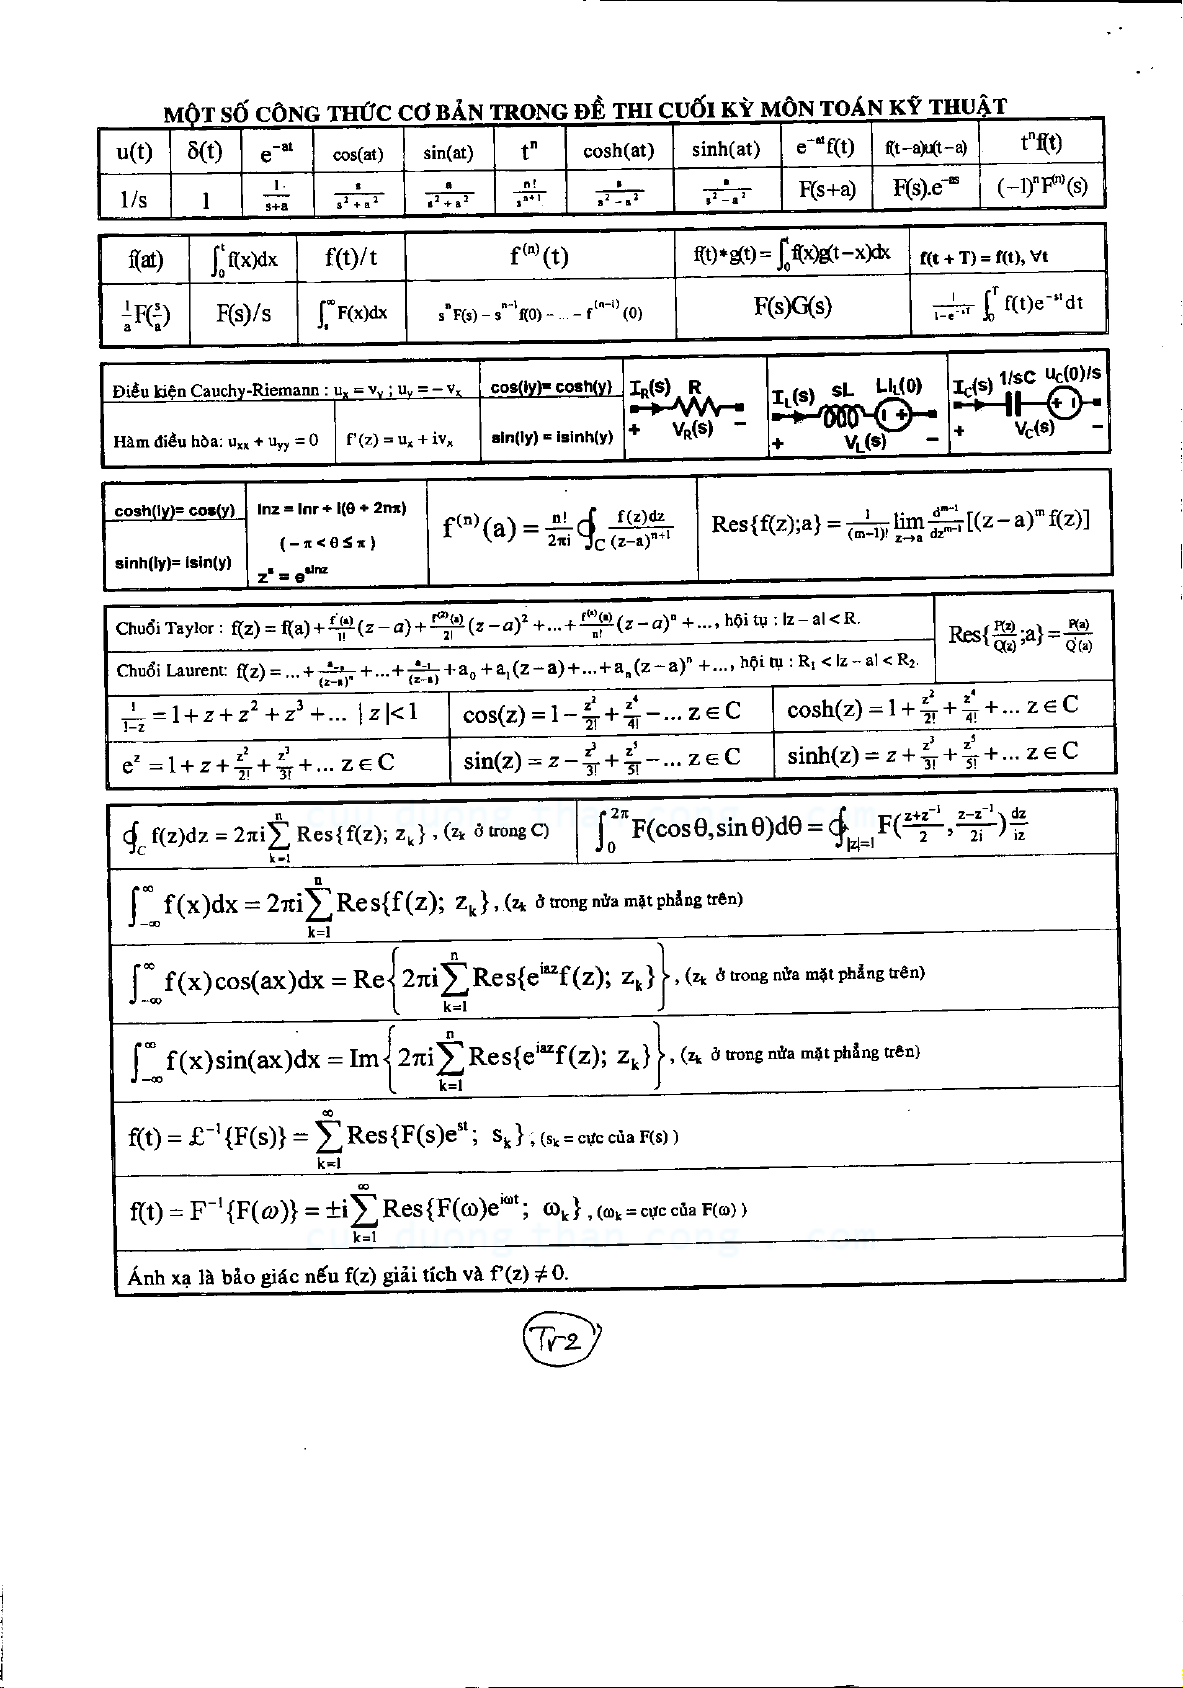 MỘT SỐ CÔNG THỨC CƠ BẢN TRONG ĐỀ THI CUỐI KỲ MÔN TOÁN KỸ THUẬT
u(t) δ(t) e^{-at} cos(at) sin(at) t^n cosh(at) sinh(at) e^{-at}f(t) f(t-a)u(t-a) t^n f(t)
1/s 1 1/(s+a) s/(s^2+a^2) a/(s^2+a^2) n!/s^{n+1} s/(s^2-a^2) a/(s^2-a^2) F(s+a) F(s).e^{-as} (-1)^n F^{(n)}(s)
f(at) ∫_0^t f(x)dx f(t)/t f^{(n)}(t) f(t)*g(t) = ∫_0^t f(x)g(t-x)dx f(t + T) = f(t), ∀t
1/a F(s/a) F(s)/s ∫_s^∞ F(x)dx s^n F(s) - s^{n-1} f(0) - ... - f^{(n-1)}(0) F(s)G(s) 1/(1-e^{-sT}) ∫_0^T f(t)e^{-st}dt
Điều kiện Cauchy-Riemann : u_x = v_y ; u_y = - v_x cos(iy)= cosh(y) I_R(s) R I_L(s) sL LI_L(0) I_C(s) 1/sC u_C(0)/s
+ -
+ -
Hàm điều hòa: u_xx + u_yy = 0 f'(z) = u_x + iv_x sin(iy) = isinh(y) + V_R(s) - + V_L(s) - + V_C(s) -
cosh(iy)= cos(y) lnz = lnr + i(θ + 2nπ) f^{(n)}(a) = n!/2πi ∮_C f(z)dz/(z-a)^{n+1} Res{f(z);a} = 1/(m-1)! lim_{z→a} d^{m-1}/dz^{m-1} [(z-a)^m f(z)]
(-π < θ ≤ π)
sinh(iy)= isin(y) z^a = e^{alnz}
Chuỗi Taylor : f(z) = f(a) + f'(a)/1! (z-a) + f^{(2)}(a)/2! (z-a)^2 + ... + f^{(n)}(a)/n! (z-a)^n + ..., hội tụ : |z - a| < R. Res{P(z)/Q(z);a} = P(a)/Q'(a)
Chuỗi Laurent: f(z) = ... + a_{-n}/(z-a)^n + ... + a_{-1}/(z-a) + a_0 + a_1(z-a) + ... + a_n(z-a)^n + ..., hội tụ : R_1 < |z - a| < R_2.
1/(1-z) = 1 + z + z^2 + z^3 + ... |z|<1 cos(z) = 1 - z^2/2! + z^4/4! - ... z ∈ C cosh(z) = 1 + z^2/2! + z^4/4! + ... z ∈ C
e^z = 1 + z + z^2/2! + z^3/3! + ... z ∈ C sin(z) = z - z^3/3! + z^5/5! - ... z ∈ C sinh(z) = z + z^3/3! + z^5/5! + ... z ∈ C
cuu duong than cong . com
∮_C f(z)dz = 2πi ∑_{k=1}^n Res{f(z); z_k} , (z_k ở trong C) ∫_0^{2π} F(cosθ, sinθ)dθ = ∮_{|z|=1} F((z+z^{-1})/2, (z-z^{-1})/2i) dz/iz
∫_{-∞}^∞ f(x)dx = 2πi ∑_{k=1}^n Res{f(z); z_k} , (z_k ở trong nửa mặt phẳng trên)
∫_{-∞}^∞ f(x)cos(ax)dx = Re{2πi ∑_{k=1}^n Res{e^{iaz}f(z); z_k}} , (z_k ở trong nửa mặt phẳng trên)
∫_{-∞}^∞ f(x)sin(ax)dx = Im{2πi ∑_{k=1}^n Res{e^{iaz}f(z); z_k}} , (z_k ở trong nửa mặt phẳng trên)
f(t) = £^{-1}{F(s)} = ∑_{k=1}^∞ Res{F(s)e^{st}; s_k} , (s_k = cực của F(s) )
f(t) = F^{-1}{F(ω)} = ±i ∑_{k=1}^∞ Res{F(ω)e^{iωt}; ω_k} , (ω_k = cực của F(ω) )
cuu duong than cong . com
Ánh xạ là bảo giác nếu f(z) giải tích và f'(z) ≠ 0.
Tr2